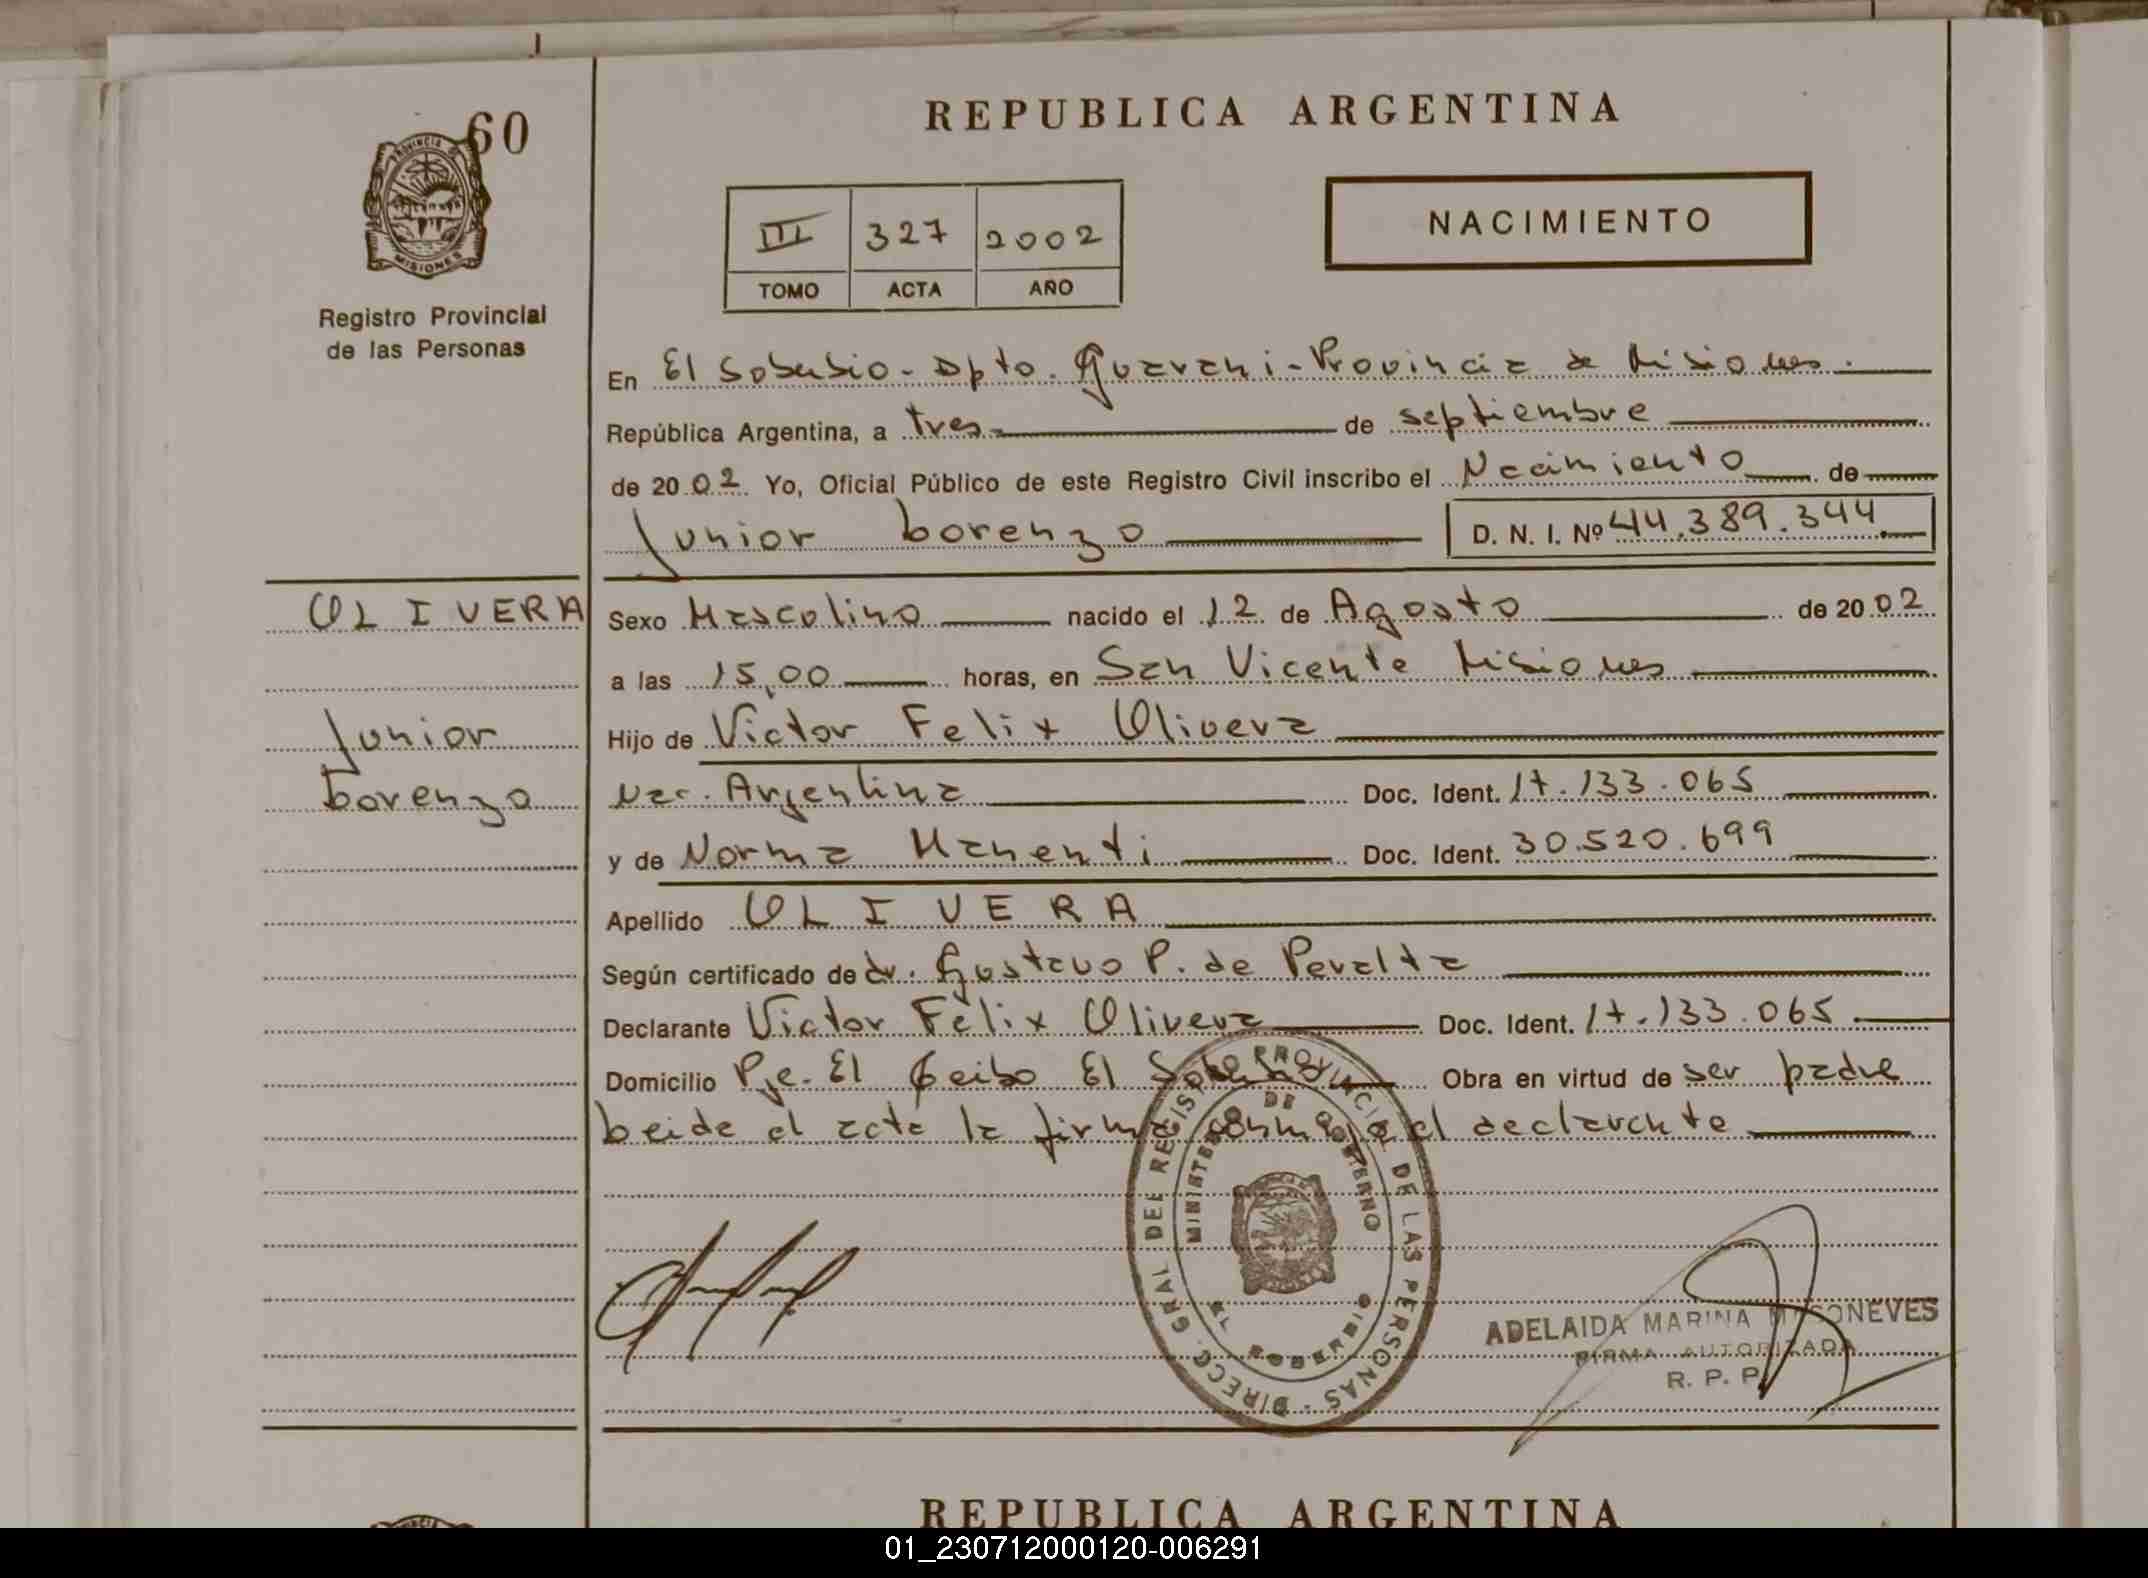 REPUBLICA ARGENTINA
60
PROVINCIA DE
MISIONES
Registro Provincial
de las Personas
NACIMIENTO
III 327 2002
TOMO ACTA AÑO
En El Soberbio - Dpto. Guarani - Provincia de Misiones.
República Argentina, a tres de septiembre
de 2002 Yo, Oficial Público de este Registro Civil inscribo el Nacimiento de
Junior Lorenzo D. N. I. Nº 44.389.344
OLIVERA
Junior
Lorenzo
Sexo Masculino nacido el 12 de Agosto de 2002
a las 15,00 horas, en San Vicente Misiones
Hijo de Victor Felix Olivera
Nac. Argentina Doc. Ident. 17.133.065
y de Norma Manenti Doc. Ident. 30.520.699
Apellido OLIVERA
Según certificado de dr. Gustavo P. de Peralta
Declarante Victor Felix Olivera Doc. Ident. 17.133.065
Domicilio Pje. El Ceibo El Soberbio Obra en virtud de ser padre
Leida el acta la firma conmigo el declarante
DIRECC. GRAL DEL REGISTRO PROVINCIAL DE LAS PERSONAS
MINISTERIO DE GOBIERNO
EL SOBERBIO
ADELAIDA MARINA
FIRMA AUTORIZADA
R. P. P.
REPUBLICA ARGENTINA
01_230712000120-006291